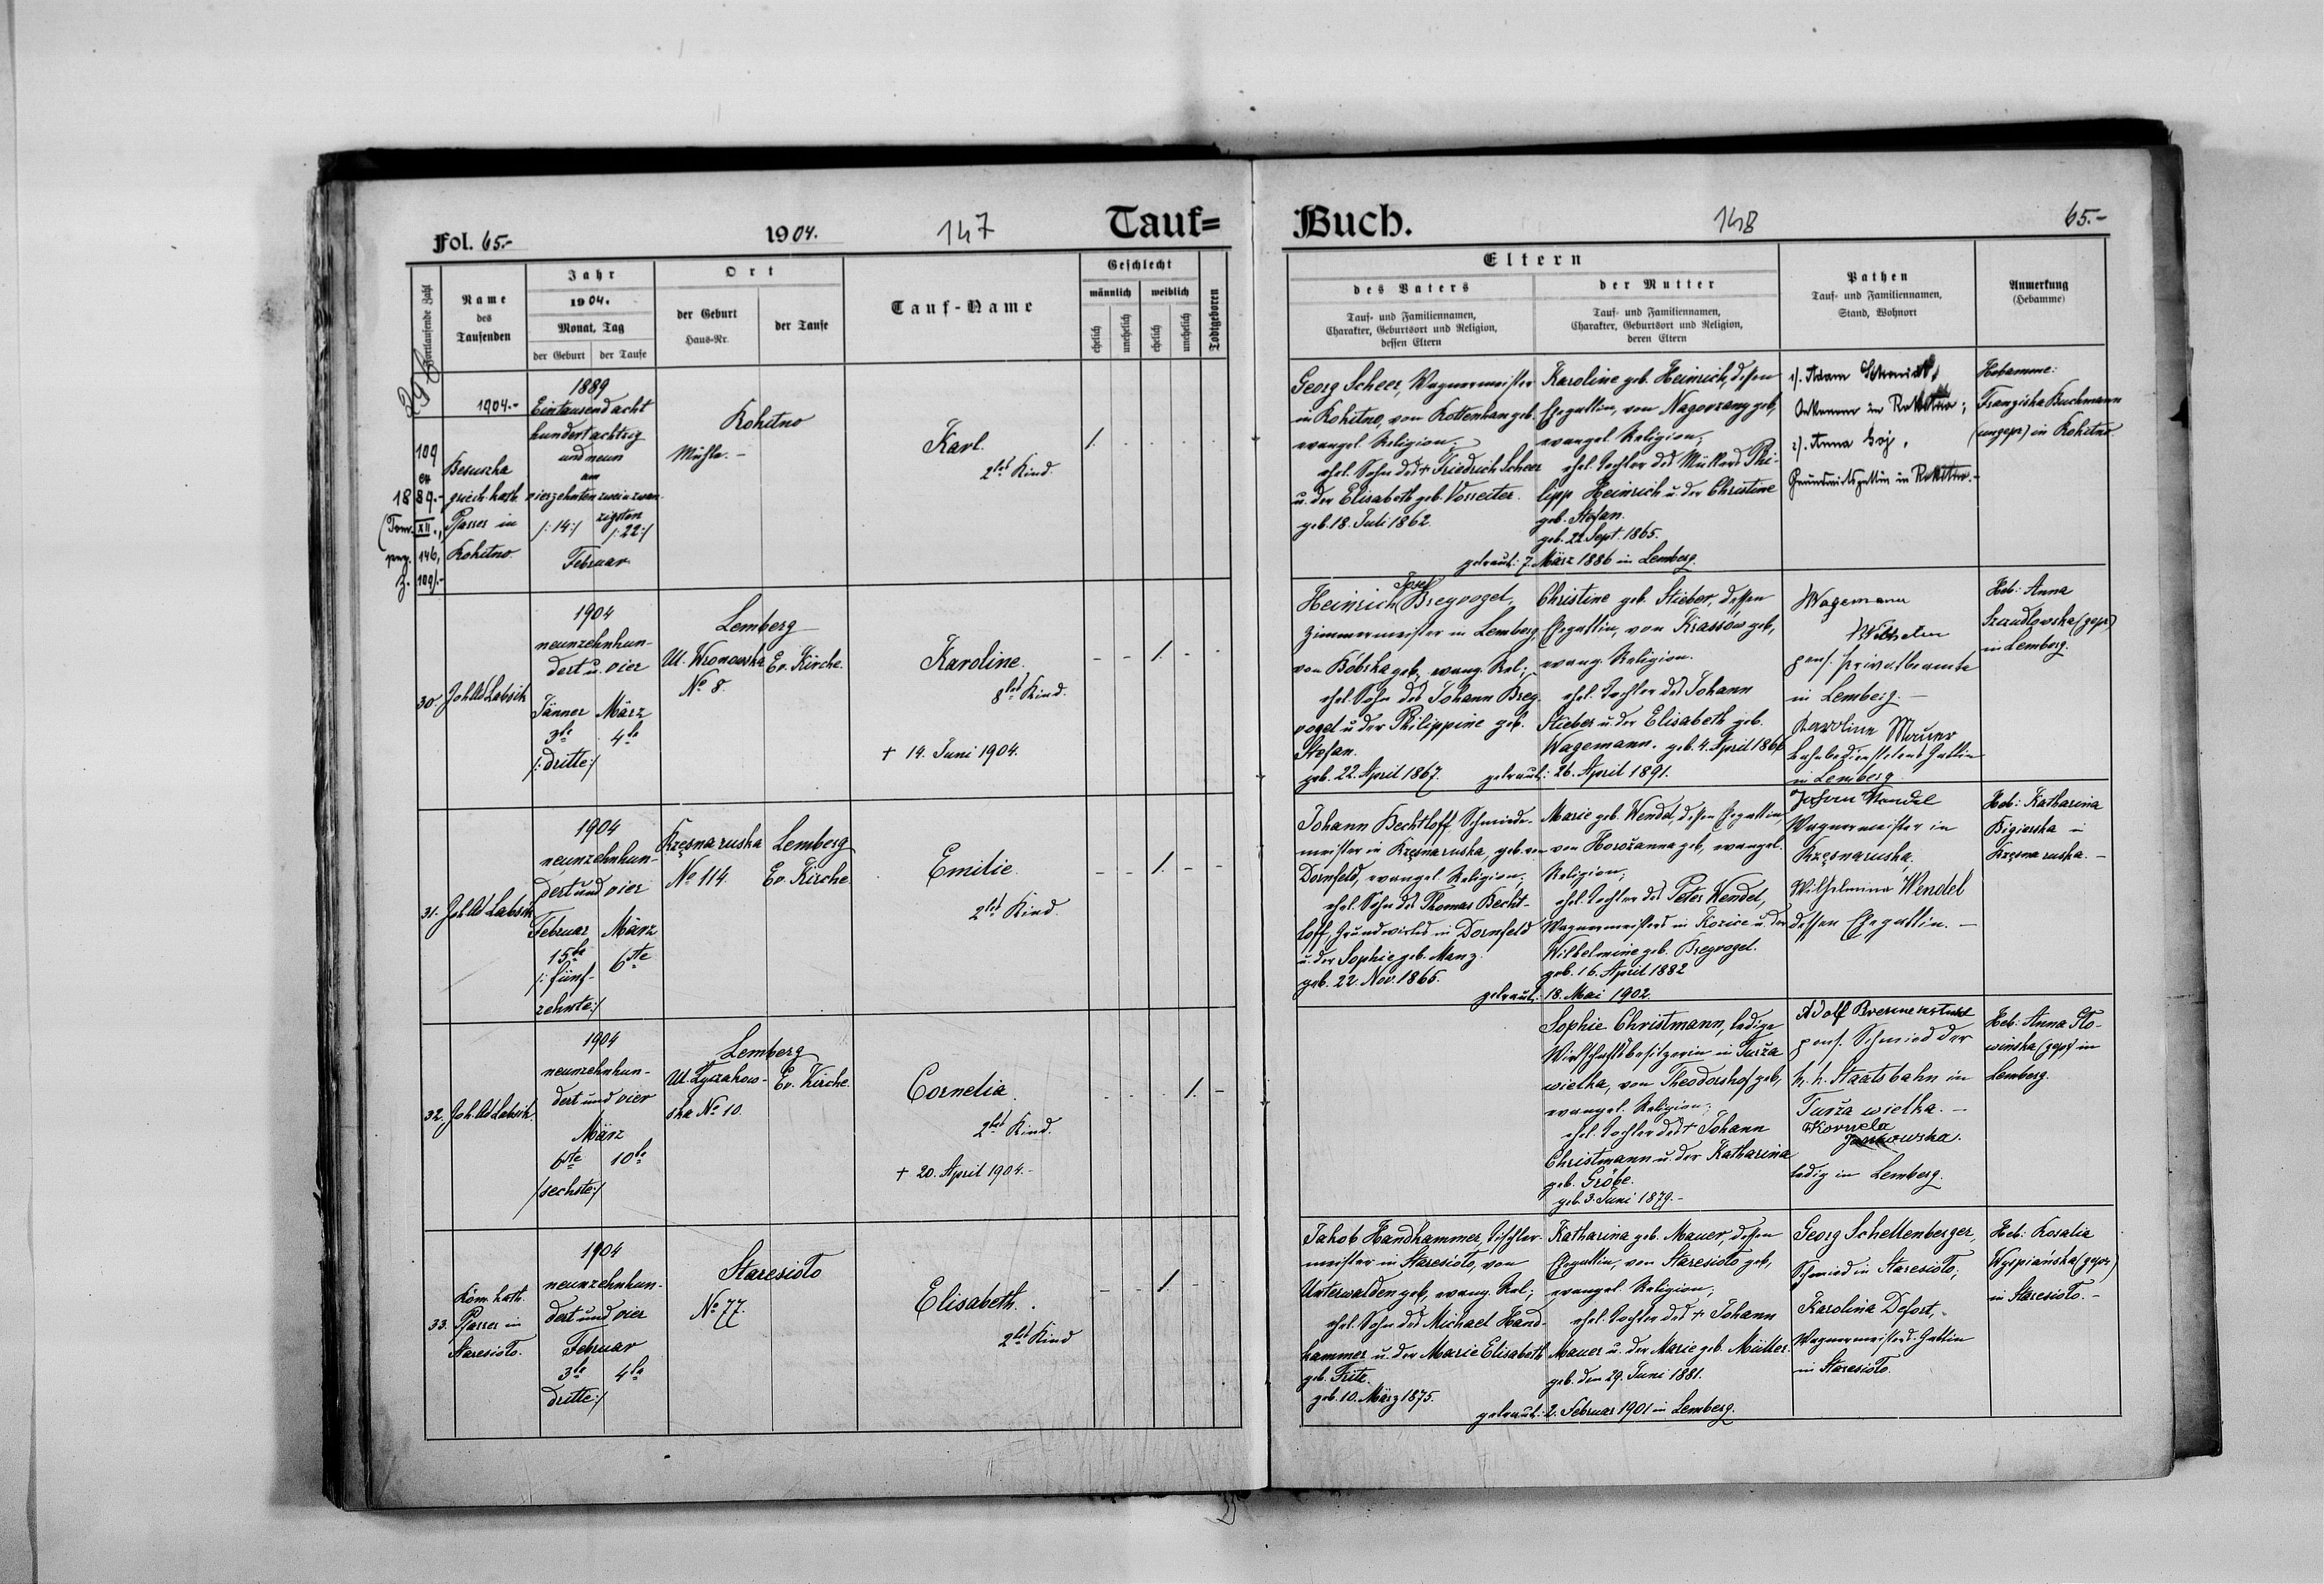 Fol. 65.-
1904.
147
Tauf=
Fortlaufende Zahl
Name
des
Taufenden
Jahr
1904.
Monat, Tag
der Geburt
der Taufe
Ort
der Geburt
Haus-Nr.
der Taufe
Tauf-Name
Geschlecht
männlich
weiblich
ehelich
unehelich
ehelich
unehelich
Todtgeboren
1904.-
109
ex
1889.-
(Tom. XII.,
pag. 146,
Z. 109/.-
griech. kath.
Pfarrer in
Rokitno
1889
Eintausend acht
hundert achtzig
und neun
am
vierzehnten
zweiundzwan-
zigsten
/:14:/
/:22:/
Februar
Rokitno
Mühle.-
Karl.
2tes Kind.
1.
30.
Joh. Ad. Labsik
1904
neunzehnhun-
dert u. vier
Jänner
März
3te
4te
/:dritte:/
Lemberg
Ul. Wronowska
No 8.
Ev. Kirche.
Karoline.
8tes Kind.
+ 14. Juni 1904.
1.
31.
Joh. Ad. Labsik
1904
neunzehnhun-
dert und vier
Februar
März
15te
6te
/:fünf-
zehnte:/
Rzęsna ruska
No 114.
Lemberg
Ev. Kirche
Emilie.
2tes Kind.
1.
32.
Joh. Ad. Labsik.
1904
neunzehnhun-
dert und vier
März
6te
10te
/sechste:/
Lemberg
Ul. Łyczakow-
ska No 10.
Ev. Kirche
Cornelia.
2tes Kind.
+ 20. April 1904.-
1.
33.
Röm. kath.
Pfarrer in
Staresioło.
1904
neunzehnhun-
dert und vier
Februar
3te
4te
dritte:/
Staresioło
No 77.
Elisabeth.
2tes Kind
1.
Buch.
148
65.-
Eltern
des Vaters
Tauf- und Familiennamen,
Charakter, Geburtsort und Religion,
dessen Eltern
der Mutter
Tauf- und Familiennamen,
Charakter, Geburtsort und Religion,
deren Eltern
Pathen
Tauf- und Familiennamen,
Stand, Wohnort
Anmerkung
(Hebamme)
Georg Scheer, Wagnermeister
in Rokitno, von Rottenhan geb.
evangel. Religion;
ehel. Sohn des + Friedrich Scheer
u. der Elisabeth geb. Vorreiter.
geb. 18. Juli 1862.
Karoline geb. Heinrich, dessen
Ehegattin, von Nagorzany geb,
evangel. Religion;
ehel. Tochter des Müllers Phi-
lipp Heinrich u. der Christine
geb. Stefan.
geb. 22. Sept. 1865.
getraut: 7. März 1886 in Lemberg.
1/. Adam Schmidt,
in Rokitno;
2/. Anna
in Rokitno.-
Hebamme:
Franziska Buchmann
(ungepr.) in Rokitno.
Heinrich Josef Bregvogel,
Zimmermeister in Lemberg,
von Bóbrka geb, evang. Rel;
ehel. Sohn des Johann Breg-
vogel u. der Philippine geb.
Stefan.
geb. 22. April 1867.
Christine geb. Stieber, dessen
Ehegattin, von Krassów geb,
evang. Religion.
ehel. Tochter des Johann
Stieber u. der Elisabeth geb.
Wagemann. geb. 4. April 1866
getraut: 26. April 1891.
Wagemann
Wilhelm
pens. Privatbeamte
in Lemberg.-
Karoline Maurer
Bahnbediensteten Gattin
in Lemberg
Heb: Anna
Szandłowska (gepr)
in Lemberg.
Johann Bechtloff, Schmiede-
meister in Rzęsna ruska, geb. von
Dornfeld, evangel. Religion,
ehel. Sohn des Thomas Becht-
loff, Grundwirts in Dornfeld
u. der Sophie geb. Manz.
geb. 22. Nov. 1865.
Marie geb. Wendel, dessen Ehegattin,
von Horożanna geb, evangel.
Religion;
ehel. Tochter des Peter Wendel,
Wagnermeisters in Kozice u. der
Wilhelmine geb. Bregvogel.
geb. 16. April 1882
getraut: 18. Mai 1902.
Johann Wendel
Wagnermeister in
Rzęsna ruska,
Wilhelmina Wendel
dessen Ehegattin.-
Heb: Katharina
in
Rzęsna ruska.-
Sophie Christmann, ledige
Wirtschaftsbesitzerin in Turza
wielka, von Theodorshof geb,
evangel. Religion;
ehel. Tochter des + Johann
Christmann u. der Katharina
geb. Gröbe.
geb. 3. Juni 1879.-
Adolf
pens. Schmied der
k. k. Staatsbahn in
Turza wielka.-
Kornela
Jankowska.
ledig in Lemberg.
Heb: Anna Sło-
wińska (gepr) in
Lemberg.
Jakob Handkammer, Tischler-
meister in Staresioło, von
Unterwalden geb, evang. Rel;
ehel. Sohn des Michael Hand-
kammer u. der Marie Elisabeth
geb. Fritz.
geb. 10. März 1875.
Katharina geb. Mauer, dessen
Ehegattin, von Staresioło geb,
evangel. Religion;
ehel. Tochter des + Johann
Mauer u. der Marie geb. Müller.
geb. den 29. Juni 1881.
getraut: 2. Februar 1901 in Lemberg.
Georg Schellenberger,
Schmied in Staresioło;
Karolina Defort,
Wagnermeisters-Gattin
in Staresioło.
Heb: Rosalia
Wyspiańska (gepr)
in Staresioło.-